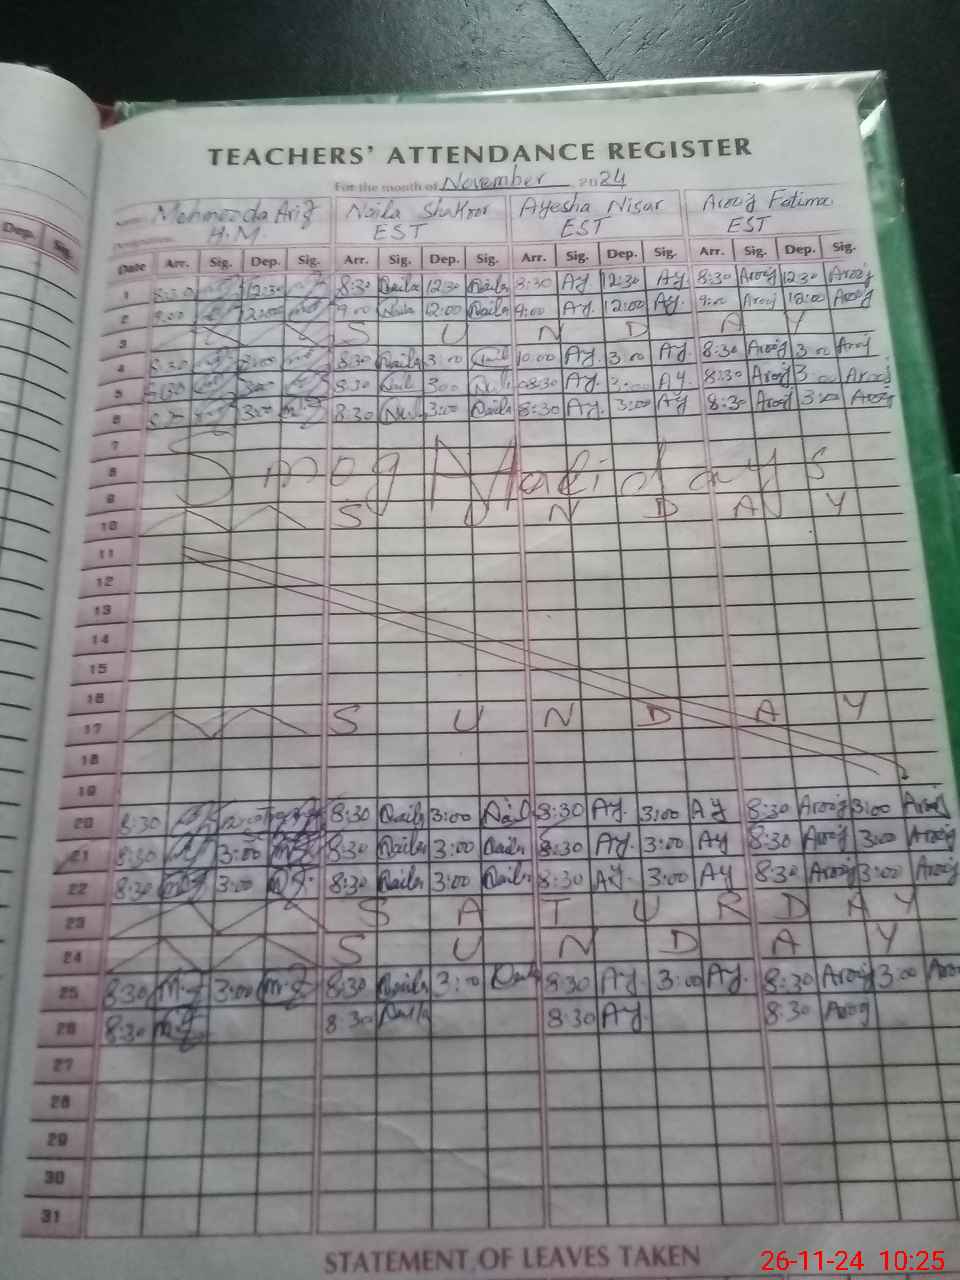 TEACHERS' ATTENDANCE REGISTER
For the month of November 2024
Naila Shakoor Ayesha Nisar Arooj Fatima
H.M. EST EST EST
Dep. Sig.
Date Arr. Sig. Dep. Sig. Arr. Sig. Dep. Sig. Arr. Sig. Dep. Sig. Arr. Sig. Dep. Sig.
1 8:30 12:30 8:30 Naila 12:30 Naila 8:30 AY 12:30 AY. 8:30 Arooj 12:30 Arooj
2 9:00 12:00 9:00 Naila 12:00 Naila 9:00 AY. 12:00 AY. 9:00 Arooj 12:00 Arooj
3 S U N D A Y
4 8:30 3:00 8:30 Naila 3:00 10:00 AY. 3:00 AY. 8:30 Arooj 3:00 Arooj
5 8:30 3:00 8:30 Nail 3:00 08:30 AY. 3:00 AY. 8:30 Arooj 3:00 Arooj
6 3:00 8:30 3:00 Naila 8:30 AY. 3:00 AY 8:30 Arooj 3:00 Arooj
7
8 Smog Holidays
9
10 S U N D A Y
11
12
13
14
15
16
17 S U N D A Y
18
19
20 8:30 8:30 Naila 3:00 Naila 8:30 AY. 3:00 AY 8:30 Arooj 3:00 Arooj
21 8:30 3:00 8:30 Naila 3:00 Naila 8:30 AY. 3:00 AY 8:30 Arooj 3:00 Arooj
22 8:30 3:00 8:30 Naila 3:00 Naila 8:30 AY. 3:00 AY 8:30 Arooj 3:00 Arooj
23 S A T U R D A Y
24 S U N D A Y
25 8:30 3:00 8:30 Naila 3:00 Naila 8:30 AY. 3:00 AY. 8:30 Arooj 3:00 Aroo
26 8:30 8:30 Naila 8:30 AY. 8:30 Arooj
27
28
29
30
31
STATEMENT OF LEAVES TAKEN
26-11-24 10:25